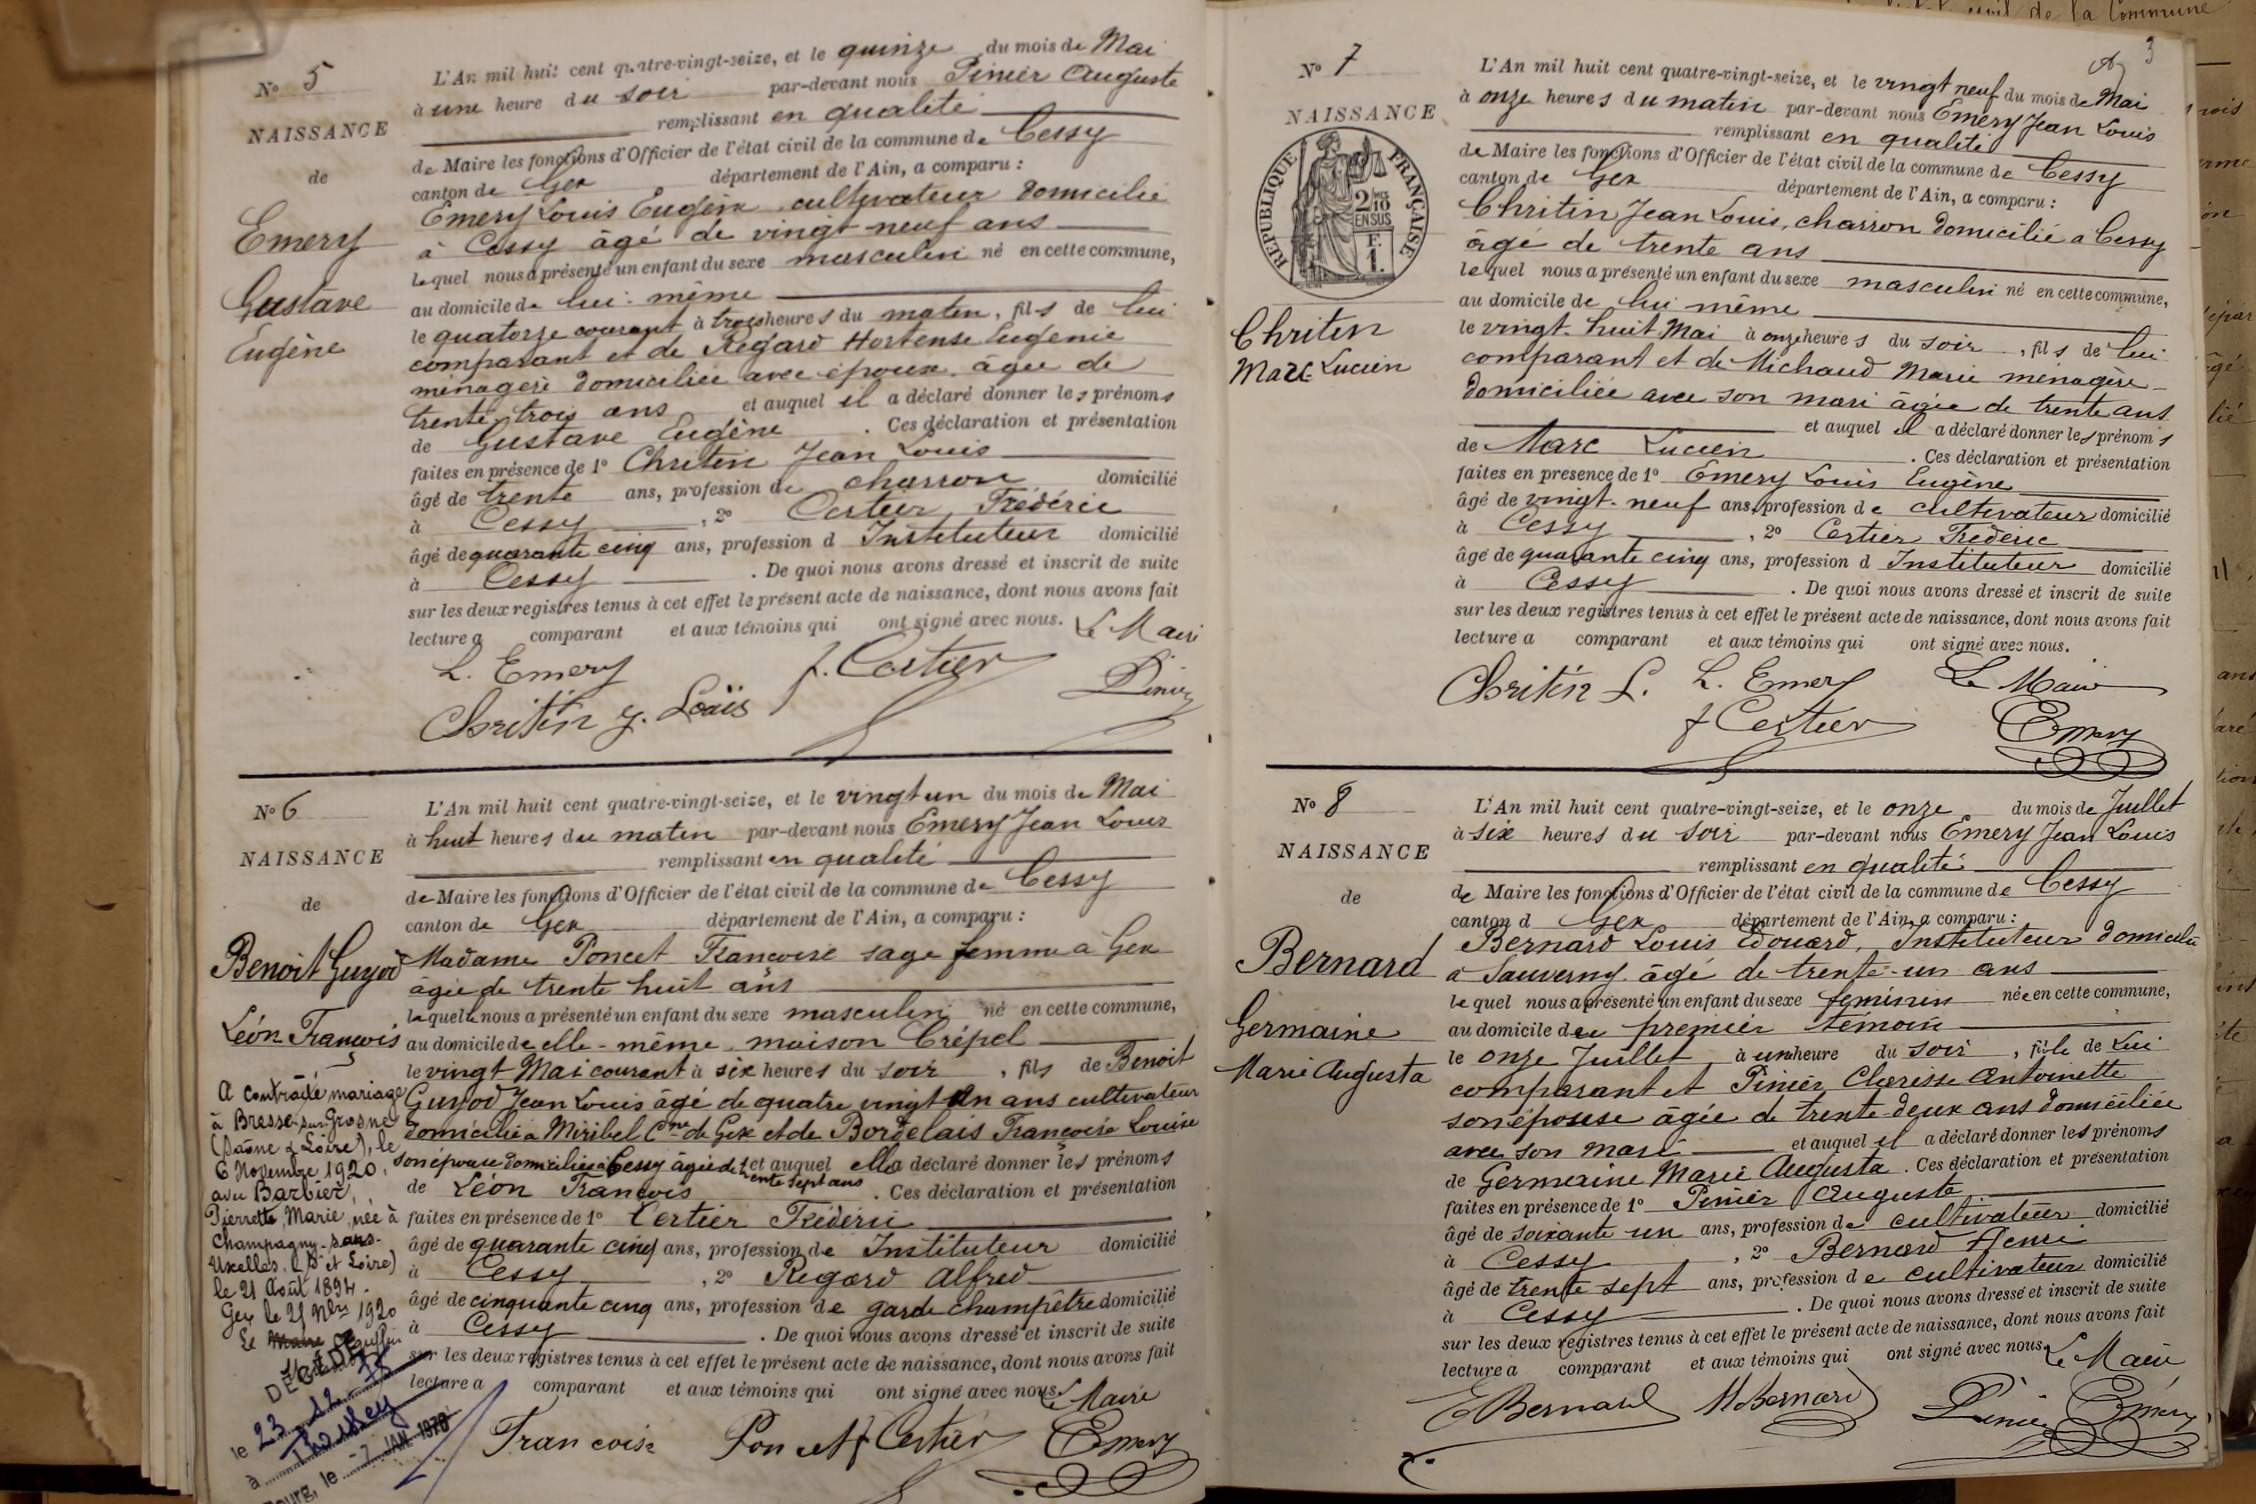 No 5
NAISSANCE
de
Emery
Gustave
Eugène
L'An mil huit cent quatre-vingt-seize, et le quinze du mois de Mai
à une heure du soir par-devant nous Pinier Auguste
remplissant en qualité
de Maire les fonctions d'Officier de l'état civil de la commune de Cessy
canton de Gex département de l'Ain, a comparu :
Emery Louis Eugène cultivateur domicilié
à Cessy âgé de vingt neuf ans
lequel nous a présenté un enfant du sexe masculin né en cette commune,
au domicile de lui-même
le quatorze courant à trois heures du matin, fils de lui
comparant et de Regard Hortense Eugénie
ménagère domiciliée avec époux âgée de
trente trois ans et auquel il a déclaré donner les prénoms
de Gustave Eugène . Ces déclaration et présentation
faites en présence de 1o Chritin Jean Louis
âgé de trente ans, profession de charron domicilié
à Cessy , 2o Certier Frédéric
âgé de quarante cinq ans, profession d Instituteur domicilié
à Cessy . De quoi nous avons dressé et inscrit de suite
sur les deux registres tenus à cet effet le présent acte de naissance, dont nous avons fait
lecture a comparant et aux témoins qui ont signé avec nous. Le Maire
L. Emery f. Certier Pinier
Chritin J. Loüis
No 6
NAISSANCE
de
Benoit Guyod
Léon François
A contracté mariage
à Bresse-sur-Grosne
(Saône & Loire), le
6 Novembre 1920,
avec Barbier,
Pierrette, Marie, née à
Champagny-sous-
Uxelles, (S et Loire)
le 21 Août 1894.
Gex le 21 Nbre 1920
Le Maire
DÉCÉDÉ
le 23
à Thoissey
Bourg, le -7 JAN. 1976
L'An mil huit cent quatre-vingt-seize, et le vingt un du mois de Mai
à huit heures du matin par-devant nous Emery Jean Louis
remplissant en qualité
de Maire les fonctions d'Officier de l'état civil de la commune de Cessy
canton de Gex département de l'Ain, a comparu :
Madame Poncet Françoise sage femme à Gex
âgée de trente huit ans
laquelle nous a présenté un enfant du sexe masculin né en cette commune,
au domicile de elle-même maison Crépel
le vingt Mai courant à six heures du soir , fils de Benoit
Guyod Jean Louis âgé de quatre vingt un ans cultivateur
domicilié à Miribel Cne de Gex et de Bordelais Françoise Louise
son épouse domiciliée à Cessy âgée de trente sept ans et auquel elle a déclaré donner les prénoms
de Léon François . Ces déclaration et présentation
faites en présence de 1o Certier Frédéric
âgé de quarante cinq ans, profession de Instituteur domicilié
à Cessy , 2o Regard Alfred
âgé de cinquante cinq ans, profession de garde champêtre domicilié
à Cessy . De quoi nous avons dressé et inscrit de suite
sur les deux registres tenus à cet effet le présent acte de naissance, dont nous avons fait
lecture a comparant et aux témoins qui ont signé avec nous. Le Maire
Francoise Poncet f Certier Emery
3
No 7
NAISSANCE
RÉPUBLIQUE FRANÇAISE
2/10
EN SUS
F.
1.
Chritin
Marc Lucien
L'An mil huit cent quatre-vingt-seize, et le vingt neuf du mois de Mai
à onze heures du matin par-devant nous Emery Jean Louis
remplissant en qualité
de Maire les fonctions d'Officier de l'état civil de la commune de Cessy
canton de Gex département de l'Ain, a comparu :
Chritin Jean Louis, charron domicilié a Cessy
âgé de trente ans
lequel nous a présenté un enfant du sexe masculin né en cette commune,
au domicile de lui même
le vingt-huit Mai à onze heures du soir , fils de lui
comparant et de Michaud Marie ménagère
domiciliée avec son mari âgée de trente ans
et auquel il a déclaré donner les prénoms
de Marc Lucien . Ces déclaration et présentation
faites en presence de 1o Emery Louis Eugène
âgé de vingt-neuf ans, profession de cultivateur domicilié
à Cessy , 2o Certier Frédéric
âgé de quarante cinq ans, profession d Instituteur domicilié
à Cessy . De quoi nous avons dressé et inscrit de suite
sur les deux registres tenus à cet effet le présent acte de naissance, dont nous avons fait
lecture a comparant et aux témoins qui ont signé avec nous.
Chritin L. L. Emery Le Maire
f Certier Emery
No 8
NAISSANCE
de
Bernard
Germaine
Marie Augusta
L'An mil huit cent quatre-vingt-seize, et le onze du mois de Juillet
à six heures du soir par-devant nous Emery Jean Louis
remplissant en qualité
de Maire les fonctions d'Officier de l'état civil de la commune de Cessy
canton d Gex département de l'Ain, a comparu :
Bernard Louis Edouard, Instituteur domicilié
à Sauverny âgé de trente-un ans
lequel nous a présenté un enfant du sexe feminin née en cette commune,
au domicile du premier témoin
le onze Juillet à une heure du soir , fille de Lui
comparant et Pinier Clarisse Antoinette
son épouse âgée de trente-deux ans domiciliée
avec son mari et auquel il a déclaré donner les prénoms
de Germaine Marie Augusta . Ces déclaration et présentation
faites en présence de 1o Pinier Auguste
âgé de soixante un ans, profession de cultivateur domicilié
à Cessy , 2o Bernard Henri
âgé de trente sept ans, profession de cultivateur domicilié
à Cessy . De quoi nous avons dressé et inscrit de suite
sur les deux registres tenus à cet effet le présent acte de naissance, dont nous avons fait
lecture a comparant et aux témoins qui ont signé avec nous. Le Maire
E Bernard H Bernard Pinier Emery